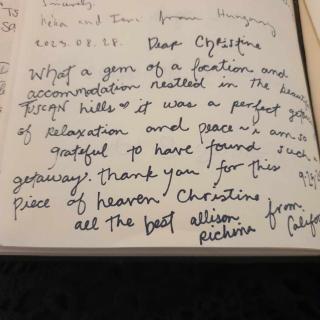 Sincerely,
and from Hungary
2023.08.28.
Dear Christine
What a gem of a location and
accommodation nestled in the
TUSCAN hills ♥ it was a perfect
of relaxation and peace ~ i am so
grateful to have found such a
getaway. thank you for this
piece of heaven Christine
all the best allison from